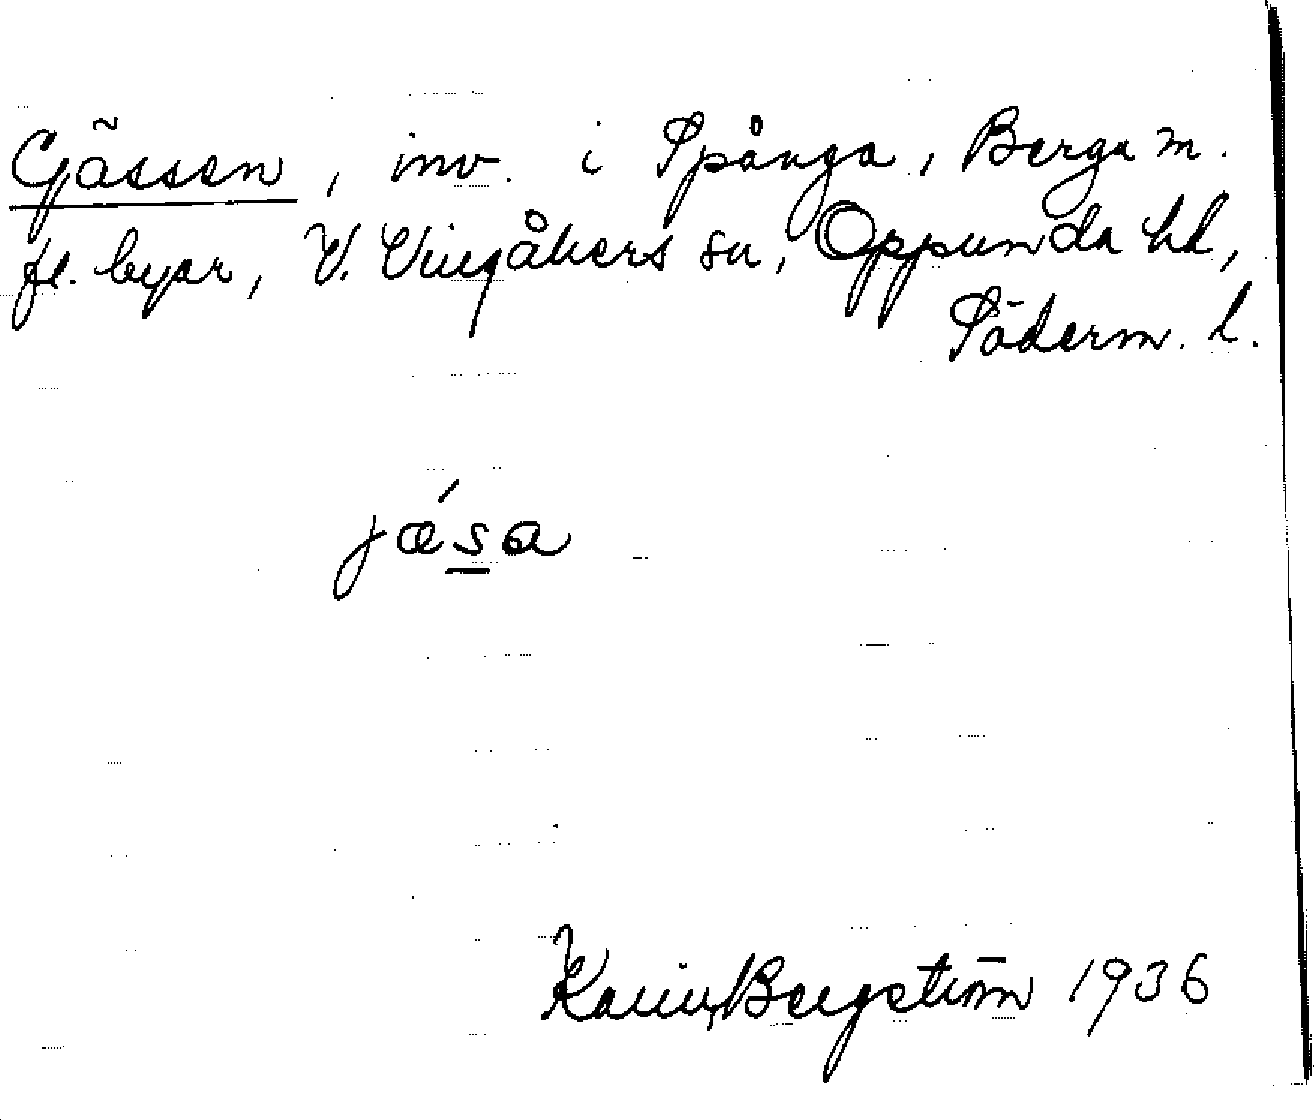 Gässen, inv. i Spånga, Berga m.
fl. byar, V. Vingåkers sn, Oppunda hd,
Söderm. l.
jǽsa
Karin Bergström 1936